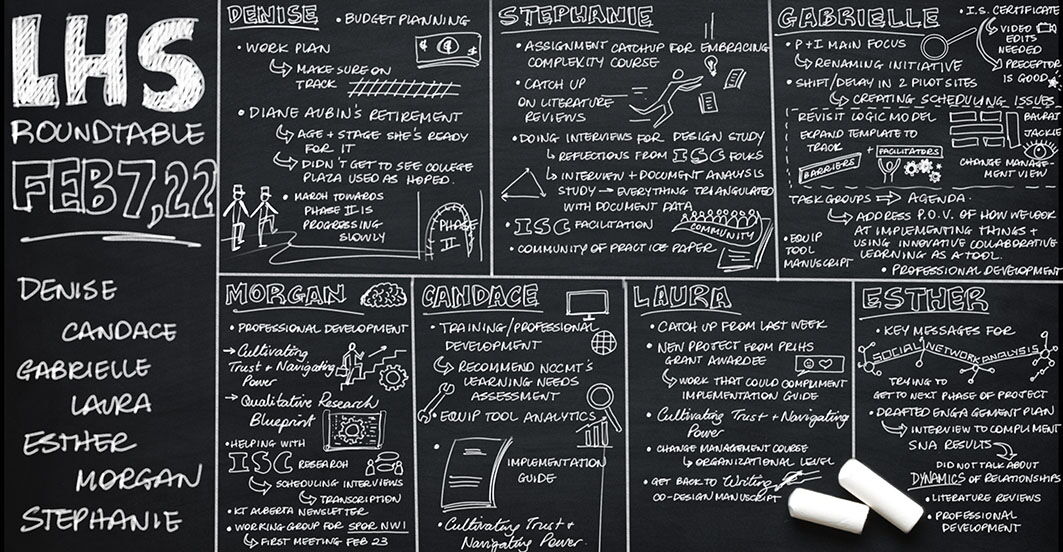 LHS
ROUNDTABLE
FEB 7, 22
DENISE
CANDACE
GABRIELLE
LAURA
ESTHER
MORGAN
STEPHANIE
DENISE
• BUDGET PLANNING
• WORK PLAN
MAKE SURE ON
TRACK
• DIANE AUBIN'S RETIREMENT
AGE + STAGE SHE'S READY
FOR IT
DIDN'T GET TO SEE COLLEGE
PLAZA USED AS HOPED.
• MARCH TOWARDS
PHASE II IS
PROGRESSING
SLOWLY
PHASE
II
STEPHANIE
• ASSIGNMENT CATCHUP FOR EMBRACING
COMPLEXITY COURSE
• CATCH UP
ON LITERATURE
REVIEWS
• DOING INTERVIEWS FOR DESIGN STUDY
REFLECTIONS FROM ISC FOLKS
INTERVIEW + DOCUMENT ANALYSIS
STUDY → EVERYTHING TRIANGULATED
WITH DOCUMENT DATA
• ISC FACILITATION
COMMUNITY
• COMMUNITY OF PRACTICE PAPER
GABRIELLE
• I.S. CERTIFICATE
VIDEO
EDITS
NEEDED
PRECEPTOR
IS GOOD
• P + I MAIN FOCUS
RENAMING INITIATIVE
• SHIFT/DELAY IN 2 PILOT SITES
CREATING SCHEDULING ISSUES
REVISIT LOGIC MODEL
EXPAND TEMPLATE TO
TRACK
BARRIERS
+ FACILITATORS
BALRAT
JACKIE
CHANGE MANAGE-
MENT VIEW
TASK GROUPS ⇒ AGENDA.
ADDRESS P.O.V. OF HOW WE LOOK
AT IMPLEMENTING THINGS +
USING INNOVATIVE COLLABORATIVE
LEARNING AS A TOOL.
• EQUIP
TOOL
MANUSCRIPT
• PROFESSIONAL DEVELOPMENT
MORGAN
• PROFESSIONAL DEVELOPMENT
→ Cultivating
Trust + Navigating
Power
→ Qualitative Research
Blueprint
• HELPING WITH
ISC RESEARCH
SCHEDULING INTERVIEWS
TRANSCRIPTION
• KT ALBERTA NEWSLETTER
• WORKING GROUP FOR SPOR NWI
FIRST MEETING FEB 23
CANDACE
• TRAINING/PROFESSIONAL
DEVELOPMENT
RECOMMEND NCCMT'S
LEARNING NEEDS
ASSESSMENT
• EQUIP TOOL ANALYTICS
IMPLEMENTATION
GUIDE
• Cultivating Trust +
Navigating Power.
LAURA
• CATCH UP FROM LAST WEEK
• NEW PROJECT FROM PRIHS
GRANT AWARDEE
WORK THAT COULD COMPLIMENT
IMPLEMENTATION GUIDE
• Cultivating Trust + Navigating
Power
• CHANGE MANAGEMENT COURSE
ORGANIZATIONAL LEVEL
• GET BACK TO Writing
CO-DESIGN MANUSCRIPT
ESTHER
• KEY MESSAGES FOR
SOCIAL NETWORK ANALYSIS
TRYING TO
GET TO NEXT PHASE OF PROJECT
• DRAFTED ENGAGEMENT PLAN
INTERVIEW TO COMPLIMENT
SNA RESULTS
DID NOT TALK ABOUT
DYNAMICS OF RELATIONSHIPS
• LITERATURE REVIEWS
• PROFESSIONAL
DEVELOPMENT